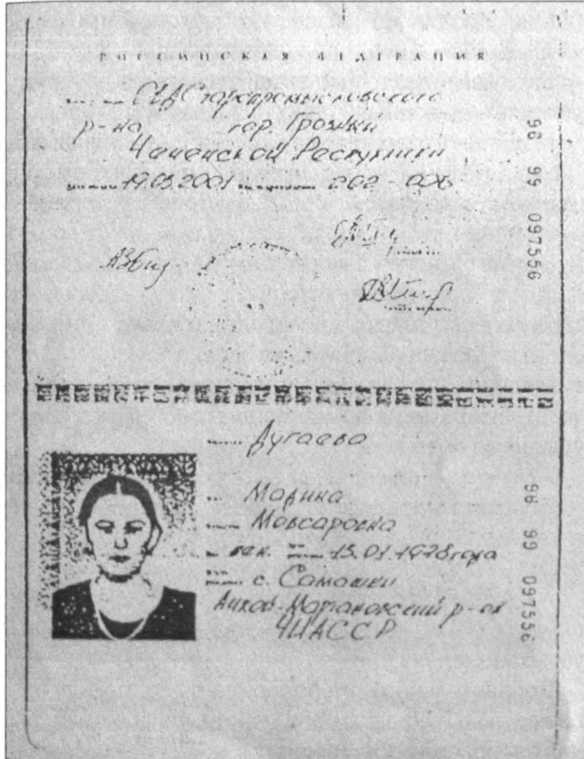 РОССИЙСКАЯ ФЕДЕРАЦИЯ
ОВД Старопромысловского
р-на гор. Грозный
Чеченской Республики
19.03.2001
96 99 097556
Дугаева
Марина
Мовсаровна
жен. 15.01.1978 года
с. Самашки
Ачхой-Мартановский р-он
ЧИАССР
96 99 097556